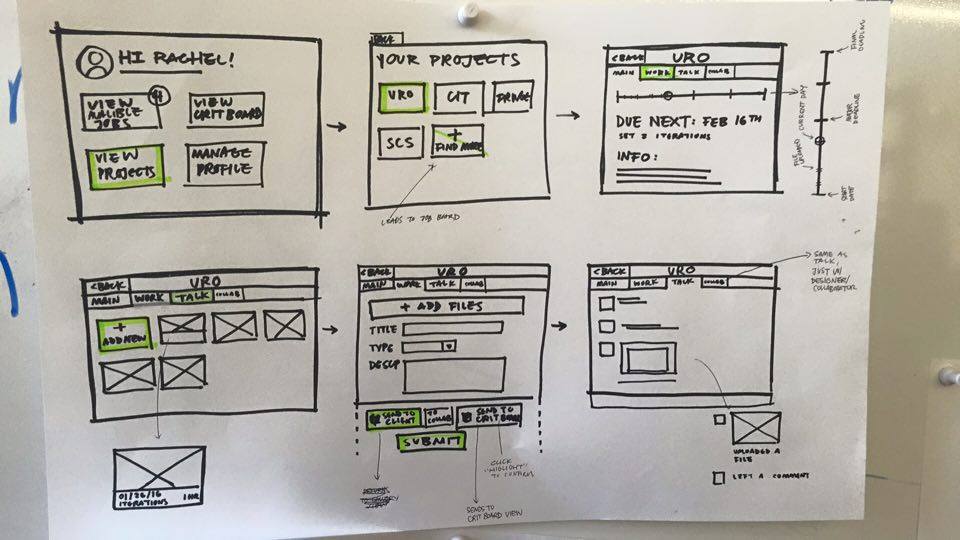 HI RACHEL!
VIEW
JOBS
4
VIEW
CRIT BOARD
VIEW
PROJECTS
MANAGE
PROFILE
BACK
YOUR PROJECTS
URO
CIT
SCS
+
FIND MORE
LEADS TO JOB BOARD
<BACK
URO
MAIN
WORK
TALK
COLLAB
DUE NEXT: FEB 16TH
SET 2 ITERATIONS
INFO:
FINAL DEADLINE
MAJOR DEADLINE
CURRENT DAY
FILE UPLOADED
START DATE
<BACK
URO
MAIN
WORK
TALK
COLLAB
+
ADD NEW
01/26/16
ITERATIONS
1 HR
<BACK
URO
MAIN
WORK
TALK
COLLAB
+ ADD FILES
TITLE
TYPE
DESCRP
SEND TO
CLIENT
TO
COLLAB
SEND TO
CRIT BOARD
SUBMIT
CLICK
"HIGLIGHT"
TO CONFIRM
SENDS TO
CRIT BOARD VIEW
<BACK
URO
MAIN
WORK
TALK
COLLAB
SAME AS
TALK,
JUST W/
DESIGNER/
COLLABORATOR
UPLOADED A
FILE
LEFT A COMMENT